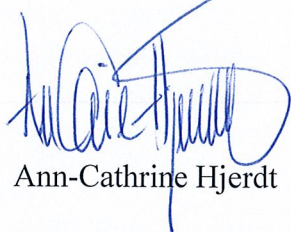 Ann-Cathrine Hjerdt